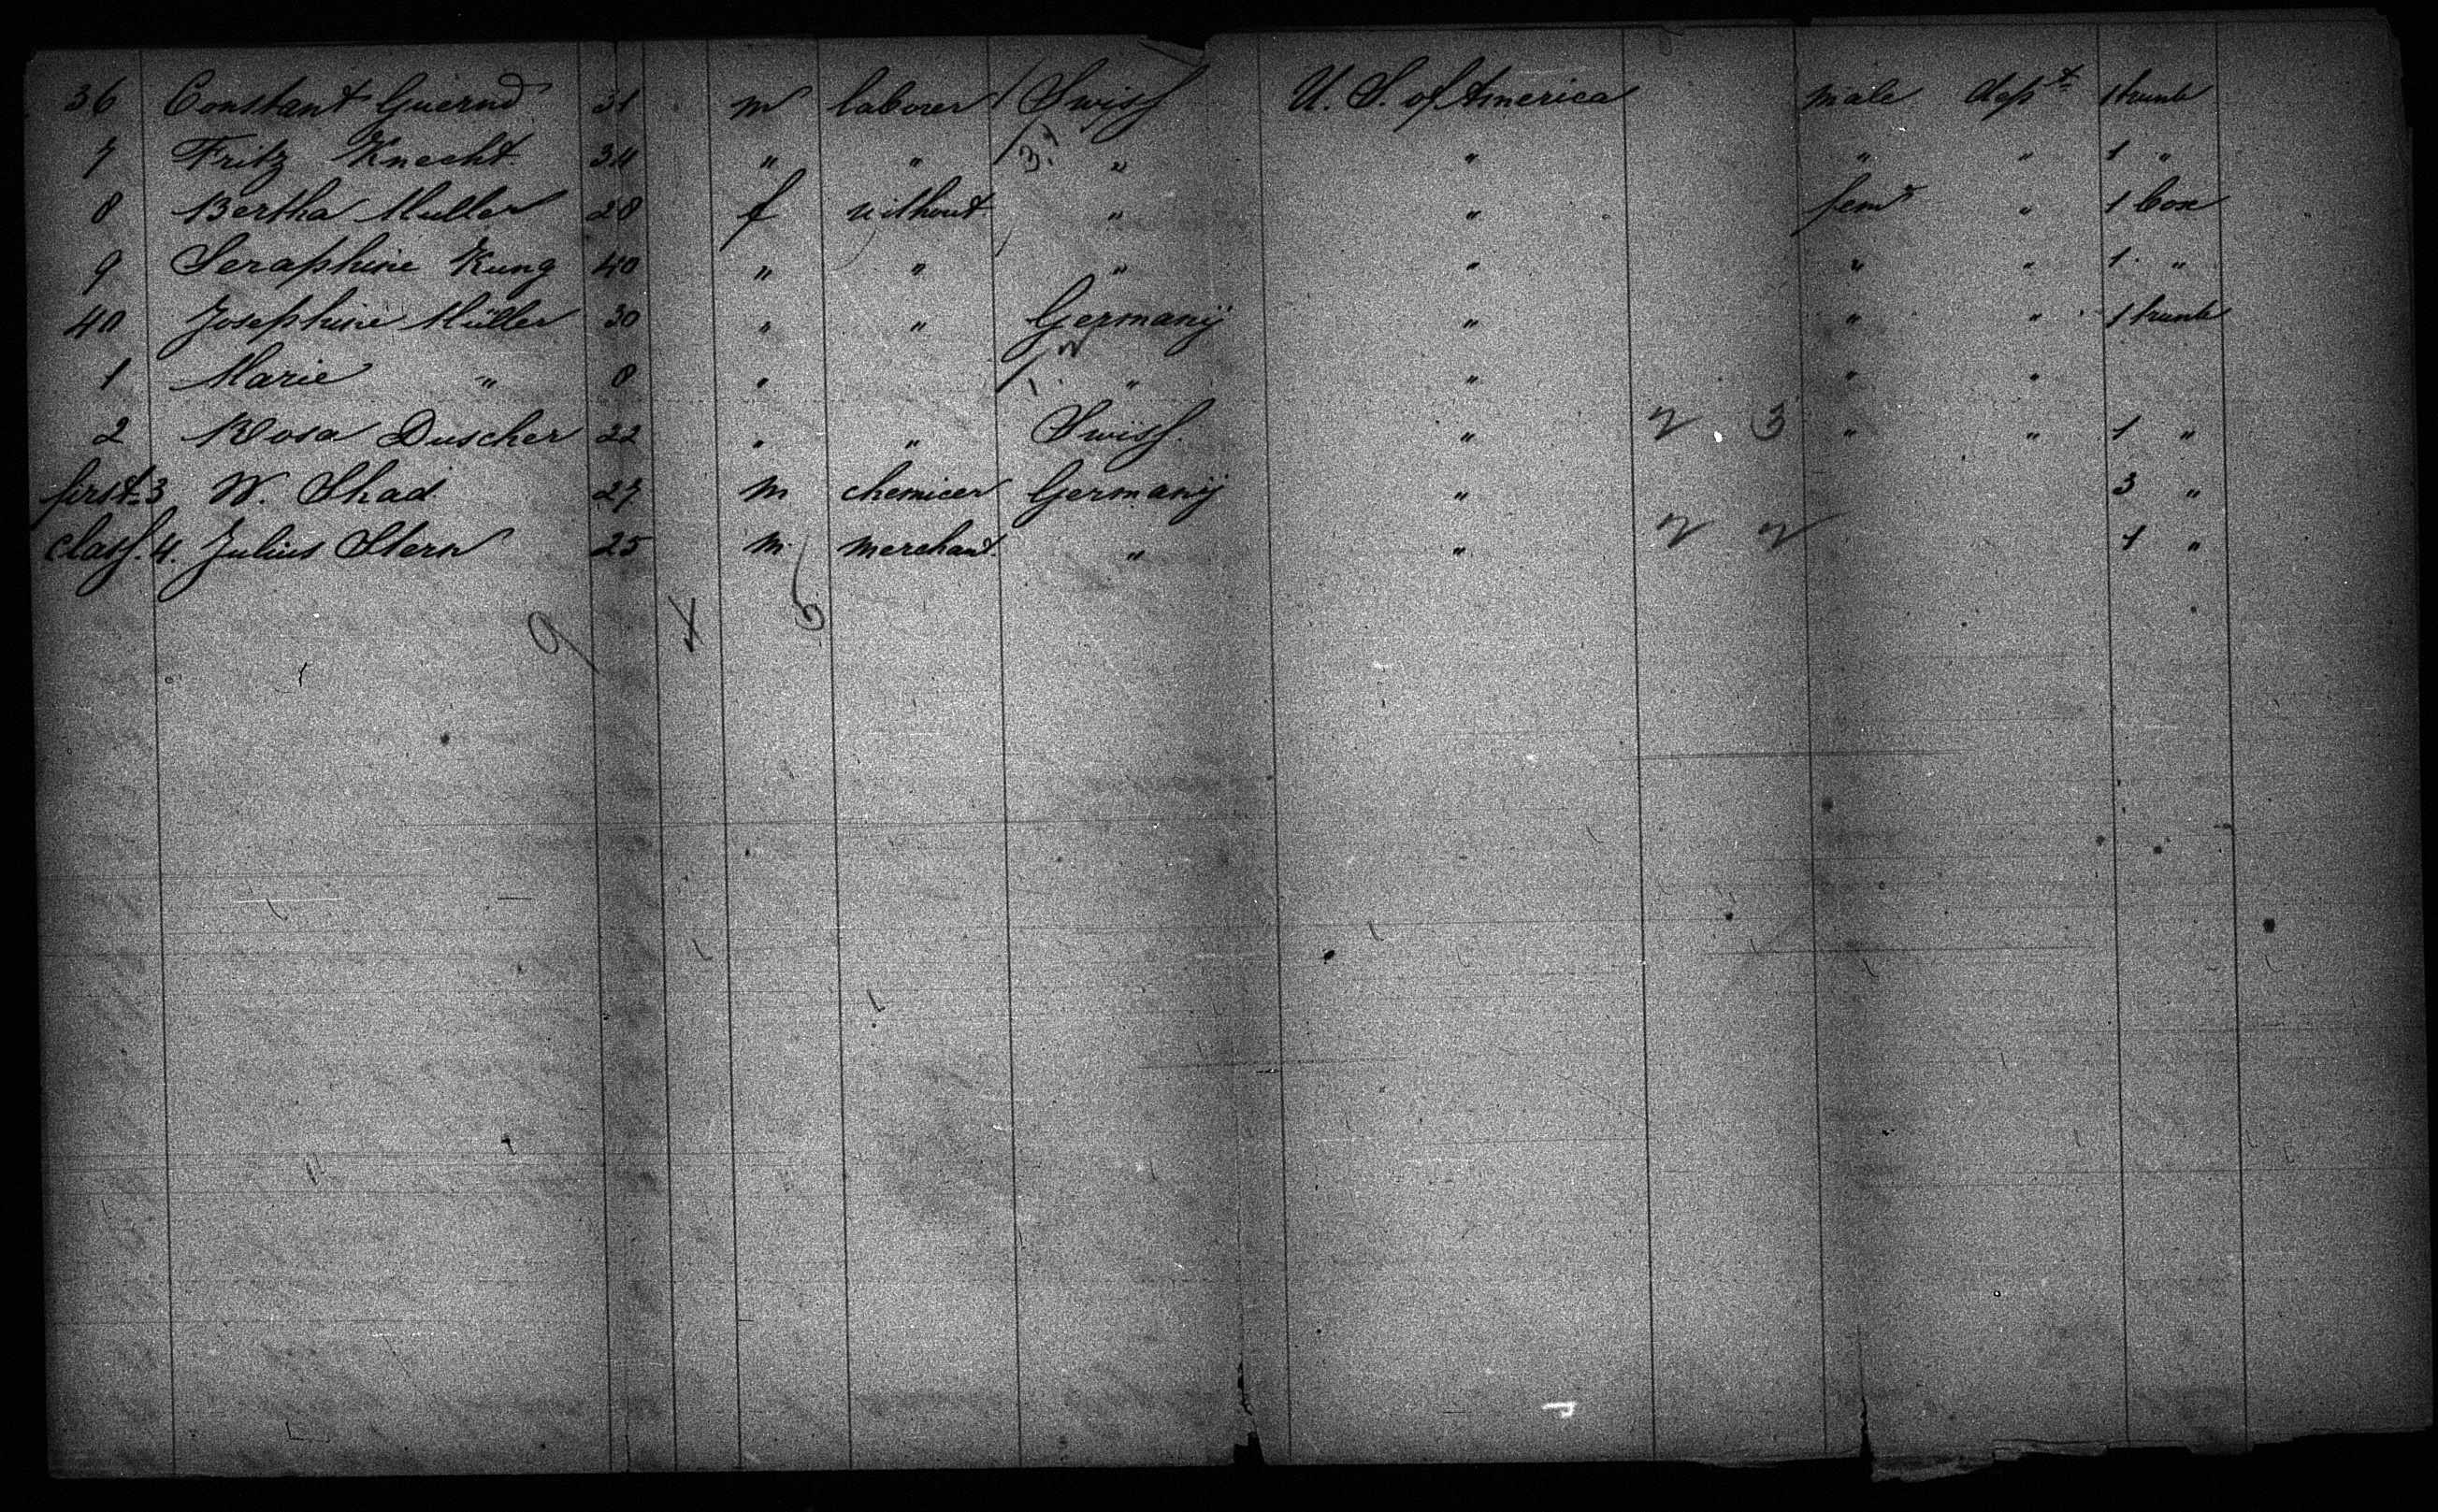 36 Constant Guernd 31 m laborer Swiss U. S. of America male dept 1 trunk
7 Fritz Knecht 34 " " " " " " 1 "
8 Bertha Muller 28 f without " " fem " 1 box
9 Seraphine Kung 40 " " " " " " 1 "
40 Josephine Müller 30 " " Germany " " " 1 trunk
1 Marie " 8 " " " " "
2 Rosa Duscher 22 " " Swiss " 2 3 " " 1 "
first 3 W. Shad 27 m chemicer Germany " 3 "
class. 4. Julius Stern 25 m merchant " " 2 2 1 "
9 4 6